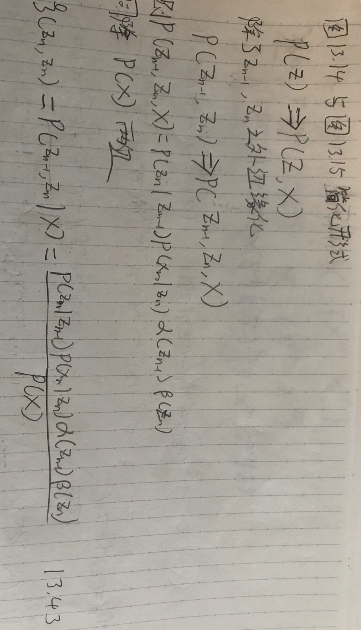 图13.14 与图13.15 简化形式
P(Z) ⇒ P(Z, X)
除了 Zn-1, Zn 之外边缘化
P(Zn-1, Zn) ⇒ P(Zn-1, Zn, X)
P(Zn-1, Zn, X) = P(Zn|Zn-1) P(Xn|Zn) α(Zn-1) β(Zn)
P(X) 而已
ξ(Zn-1, Zn) = P(Zn-1, Zn|X) = P(Zn|Zn-1) P(Xn|Zn) α(Zn-1) β(Zn) / P(X) 13.43